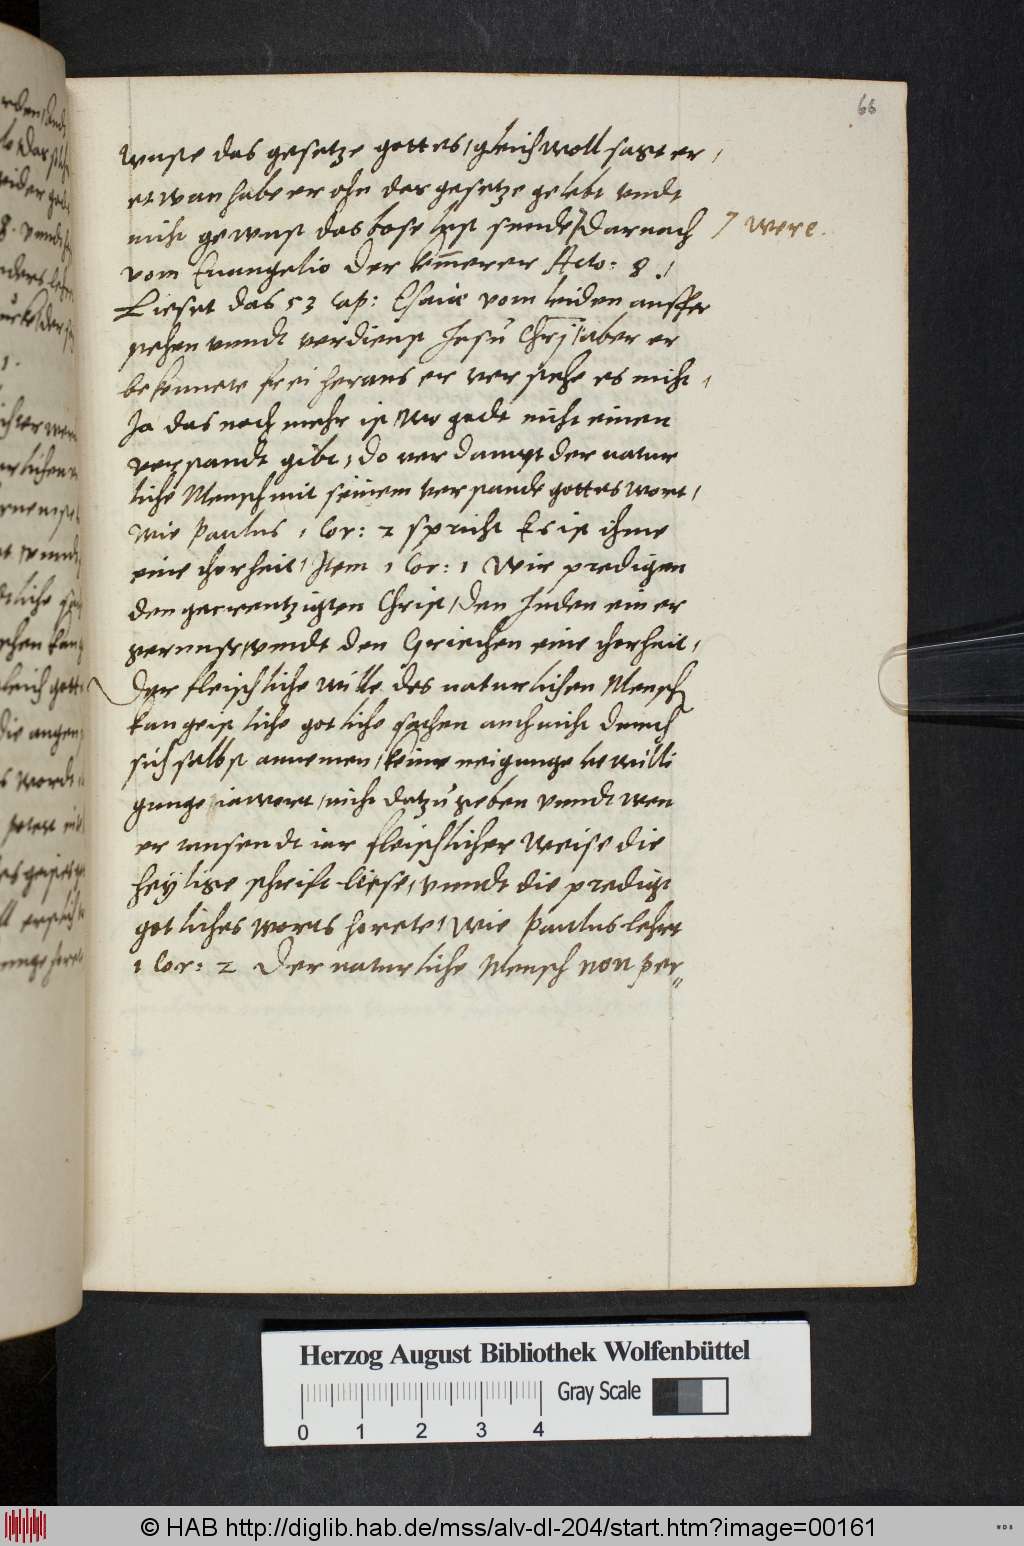 66
wuste das gesetze gottes / gleichwoll saget er /
etwan habe er ohn das gesetze gelebt undt
nicht gewust das bose lust sunde / darnach
7 were.
vom Euangelio der kemerer Acto: 8 /
Lieset das 53 Cap: Esaiae vom leiden aufer
stehen unndt verdienst Jesu Chrj / aber er
bekennete frei heraus er verstehe es nicht /
Ja das noch mehr ist / wo godt nicht einen
verstandt gibt, do verdampt der natur
liche Mensch mit seinem verstande gottes wort /
wie Paulus 1 Cor: 2 spricht Es ist ihme
eine thorheit / Item 1 Cor: 1 Wir predigen
den gecreutzigten Christ / den Juden ein er
gernus / undt den Griechen eine thorheit /
Der fleischliche wille des naturlichen Mensch
kan geistliche gotliche sachen auch nicht durch
sich selbst annemen / keine neigunge bewilli
gunge iawort / nicht datzu geben unndt wen
er tausendt iar fleischlicher weise die
heylige schrift liese / unndt die predigt
gotliches worts horete / wie Paulus lehrt
1 Cor: 2 Der naturliche Mensch non per„
Herzog August Bibliothek Wolfenbüttel
Gray Scale
0 1 2 3 4
© HAB http://diglib.hab.de/mss/alv-dl-204/start.htm?image=00161